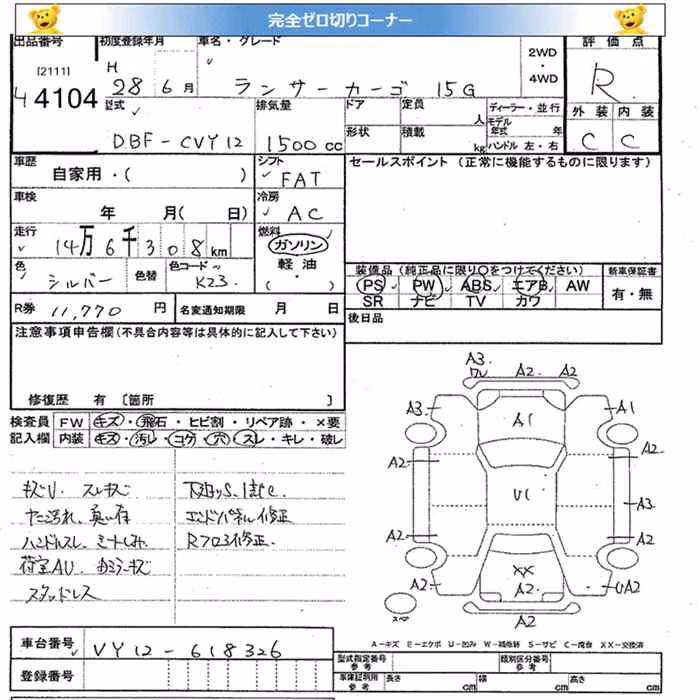 完全ゼロ切りコーナー
出品番号 初度登録年月 車名・グレード 2WD ・ 4WD 評価点
[2111] H 28 6月 ランサーカーゴ 15G R
4 4104
型式 排気量 ドア 定員 人 ディーラー・並行 外装 内装
DBF-CVY12 1500cc 形状 積載 kg モデル年式 年 ハンドル 左・右 C C
車歴 自家用・( ) シフト FAT セールスポイント (正常に機能するものに限ります)
車検 年 月( 日) 冷房 AC
走行 14万6千308km 燃料 ガソリン 軽油・( )
色 シルバー 色替 色コード K23 装備品 (純正品に限り○をつけてください) 新車保証書
PS PW ABS エアB AW 有・無
SR ナビ TV カワ
R券 11,770円 名変通知期限 月 日 後日品
注意事項申告欄(不具合内容等は具体的に記入して下さい)
修復歴 有 [箇所 ]
検査員 FW キズ・飛石・ヒビ割・リペア跡・×要
記入欄 内装 キズ・汚レ・コゲ・穴・スレ・キレ・破レ
キズU. スレキズ
ハンドルスレ.
荷室AU.
スタッドレス
エンドパネル修正
Rフロア修正.
A3 ワレ A2 A2
A3 A1 A1
A2 A2
U1 A3
A2 A2
A2 XX A2 UA2
A2
スペア
A-キズ E-エクボ U-凹ミ W-補修跡 S-サビ C-腐食 XX-交換済
車台番号 VY12-618326
登録番号
型式指定番号 参考 類別区分番号 参考
車庫証明用 参考 長さ cm 幅 cm 高さ cm